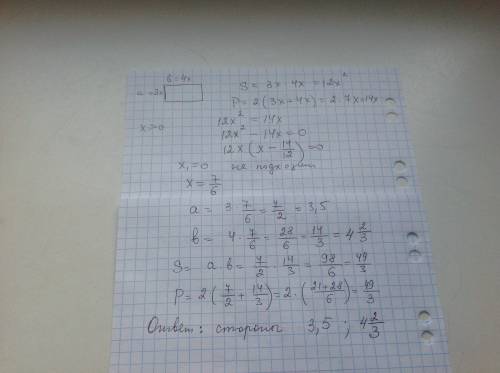 в = 4x
a = 3x
S = 3x · 4x = 12x²
P = 2(3x + 4x) = 2 · 7x = 14x
x > 0
12x² = 14x
12x² − 14x = 0
12x (x − 14/12) = 0
x₁ = 0 не подходит
x = 7/6
a = 3 · 7/6 = 7/2 = 3,5
b = 4 · 7/6 = 28/6 = 14/3 = 4 2/3
S = a · b = 7/2 · 14/3 = 98/6 = 49/3
P = 2(7/2 + 14/3) = 2 · (21+28/6) = 49/3
Ответ: стороны 3,5 ; 4 2/3